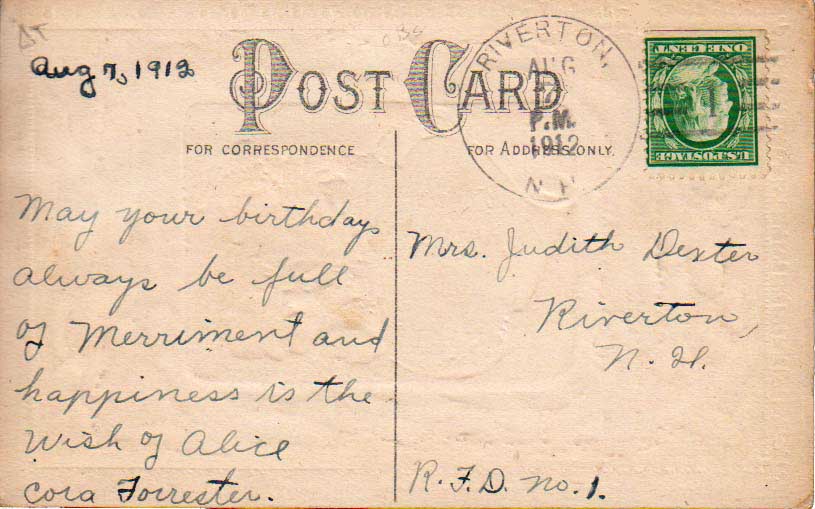 Aug 7, 1912
POST CARD
FOR CORRESPONDENCE
FOR ADDRESS ONLY.
RIVERTON,
AUG
P.M.
1912
N.H.
U.S. POSTAGE
ONE CENT
May your birthday
always be full
of Merriment and
happiness is the
Wish of Alice
Cora Forrester.
Mrs. Judith Dexter
Riverton,
N. H.
R. F. D. No. 1.